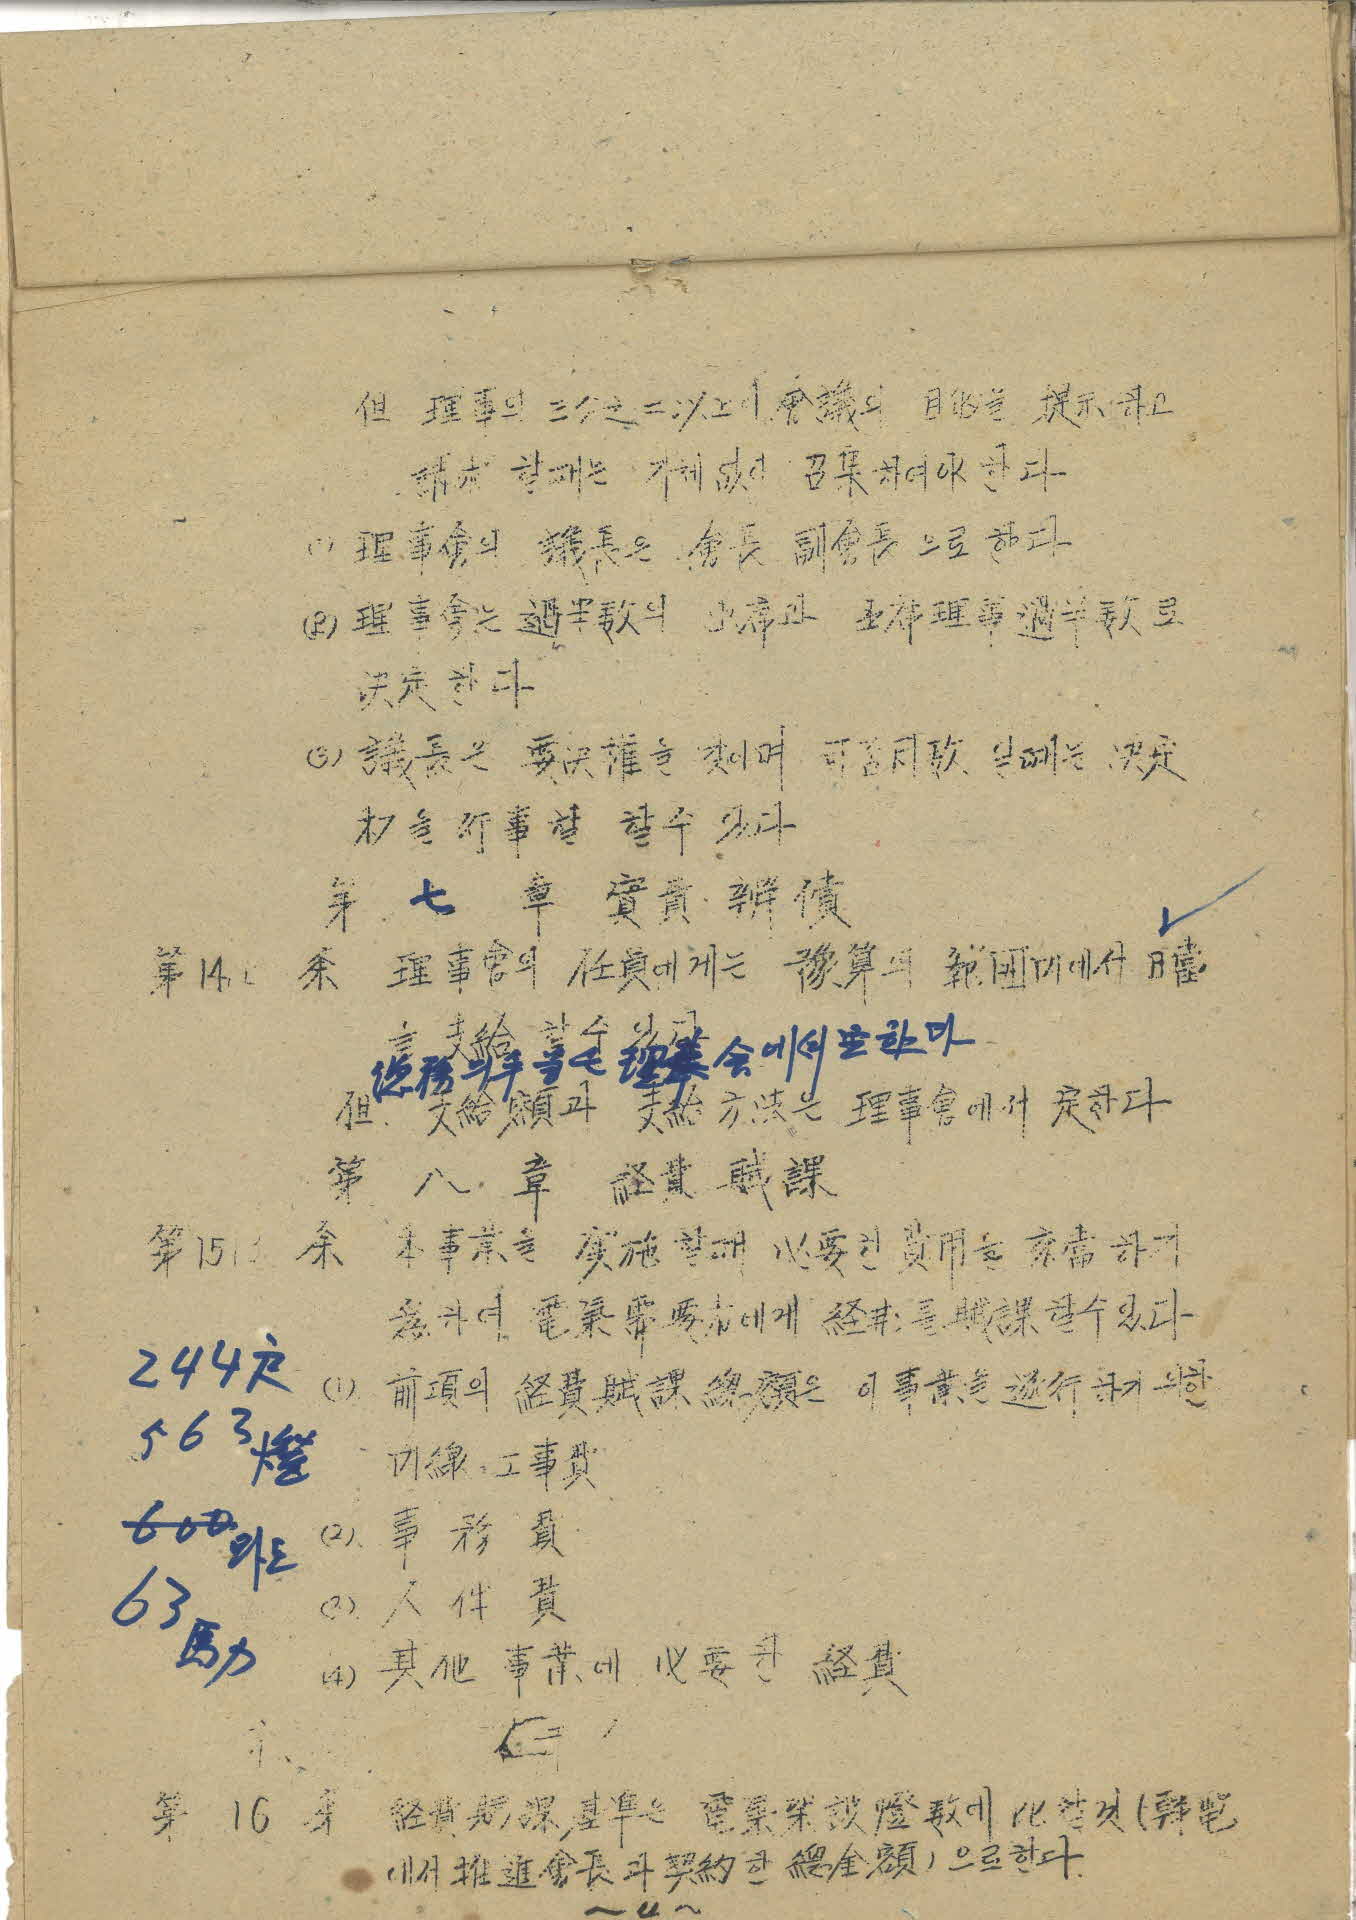 但 理事의 三分之二以上이 會議의 目的을 提示하고
請求 할때는 지체없이 召集하여야 한다
(1) 理事會의 議長은 會長 副會長 으로 한다
(2) 理事會는 過半数의 出席과 出席理事過半数로
決定한다
(3) 議長은 要決權을 갖이며 可否同数 일때는 決定
권을 行事할 할수 있다
第 七 章 實費 辨償
第14 条 理事會의 任員에게는 豫算의 範囲内에서
支給 할수 있다
總務의 手當은 理事会에서 定한다
但 支給額과 支給方法은 理事會에서 定한다
第 八 章 経費 賦課
第15 条 本事業을 実施할때 必要한 費用을 充當하기
爲하여 電気需要者에게 経費를 賦課할수있다
244戸
(1) 前項의 経費賦課 総額은 이事業을 遂行하기 위한
563燈
内線 工事費
600와트
(2) 事務費
63馬力
(3) 人件費
(4) 其他 事業에 必要한 経費
第 16 条 経費賦課 基準은 電気架設燈数에 比한것(韓電
에서 推進會長과 契約한 總金額)으로한다
~4~